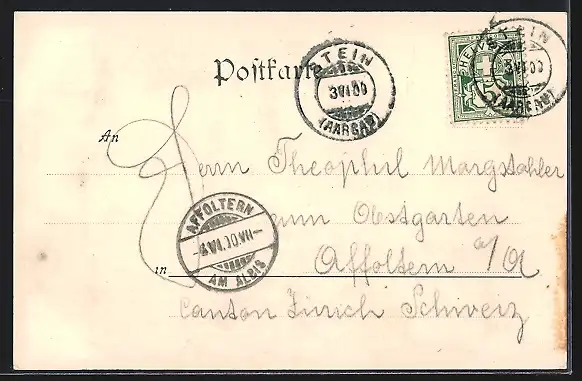 Postkarte
STEIN
3 VI 00
(AARGAU)
HELVETIA
5
STEIN
3 VI 00
(AARGAU)
An
Herrn Theophil Margstahler
zum Obstgarten
AFFOLTERN
AM ALBIS
in
Affoltern a/A
Canton Zürich Schweiz